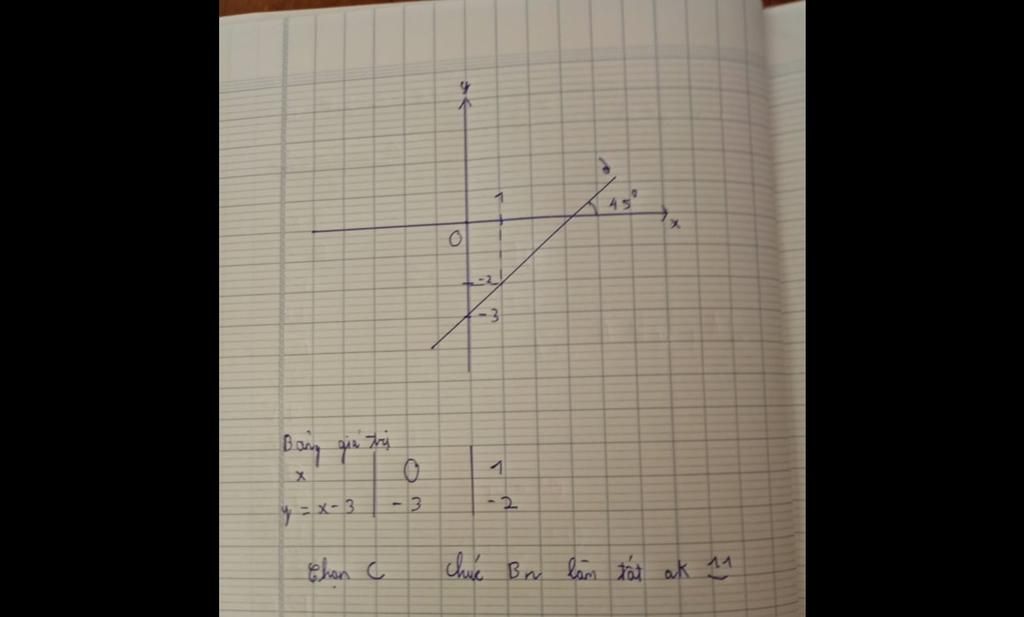 y
d
1
45°
x
O
-2
-3
Bảng giá trị
x | 0 | 1
y = x-3 | -3 | -2
Chọn C Chúc Bn làm tốt ak